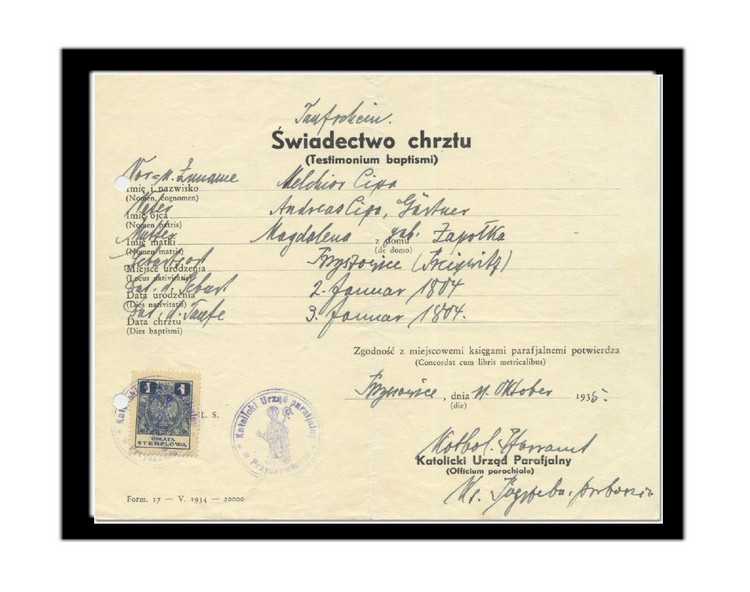 Taufschein.
Świadectwo chrztu
(Testimonium baptismi)
Vor- u. Zuname Melchior Cipa
Imię i nazwisko
(Nomen, cognomen)
Vater Andreas Cipa, Gärtner
Imię ojca
(Nomen patris)
Mutter Magdalena z domu geb. Zapotka
Imię matki (de domo)
(Nomen matris)
Geburtsort Przyszowice (Preiswitz)
Miejsce urodzenia
(Locus nativitatis)
Dat. d. Geburt 2. Januar 1804
Data urodzenia
(Dies nativitatis)
Dat. d. Taufe 3. Januar 1804.
Data chrztu
(Dies baptismi)
Zgodność z miejscowemi księgami parafjalnemi potwierdza
(Concordat cum libris metricalibus)
Przyszowice, dnia 21. Oktober 1935.
(die)
1 1
OPŁATA
STEMPLOWA
L. S.
Katolicki Urząd parafjalny
w Przyszowicach
Kathol. Pfarramt
Katolicki Urząd Parafjalny
(Officium parochiale)
Ks.
Form. 17 — V. 1934 — 20000